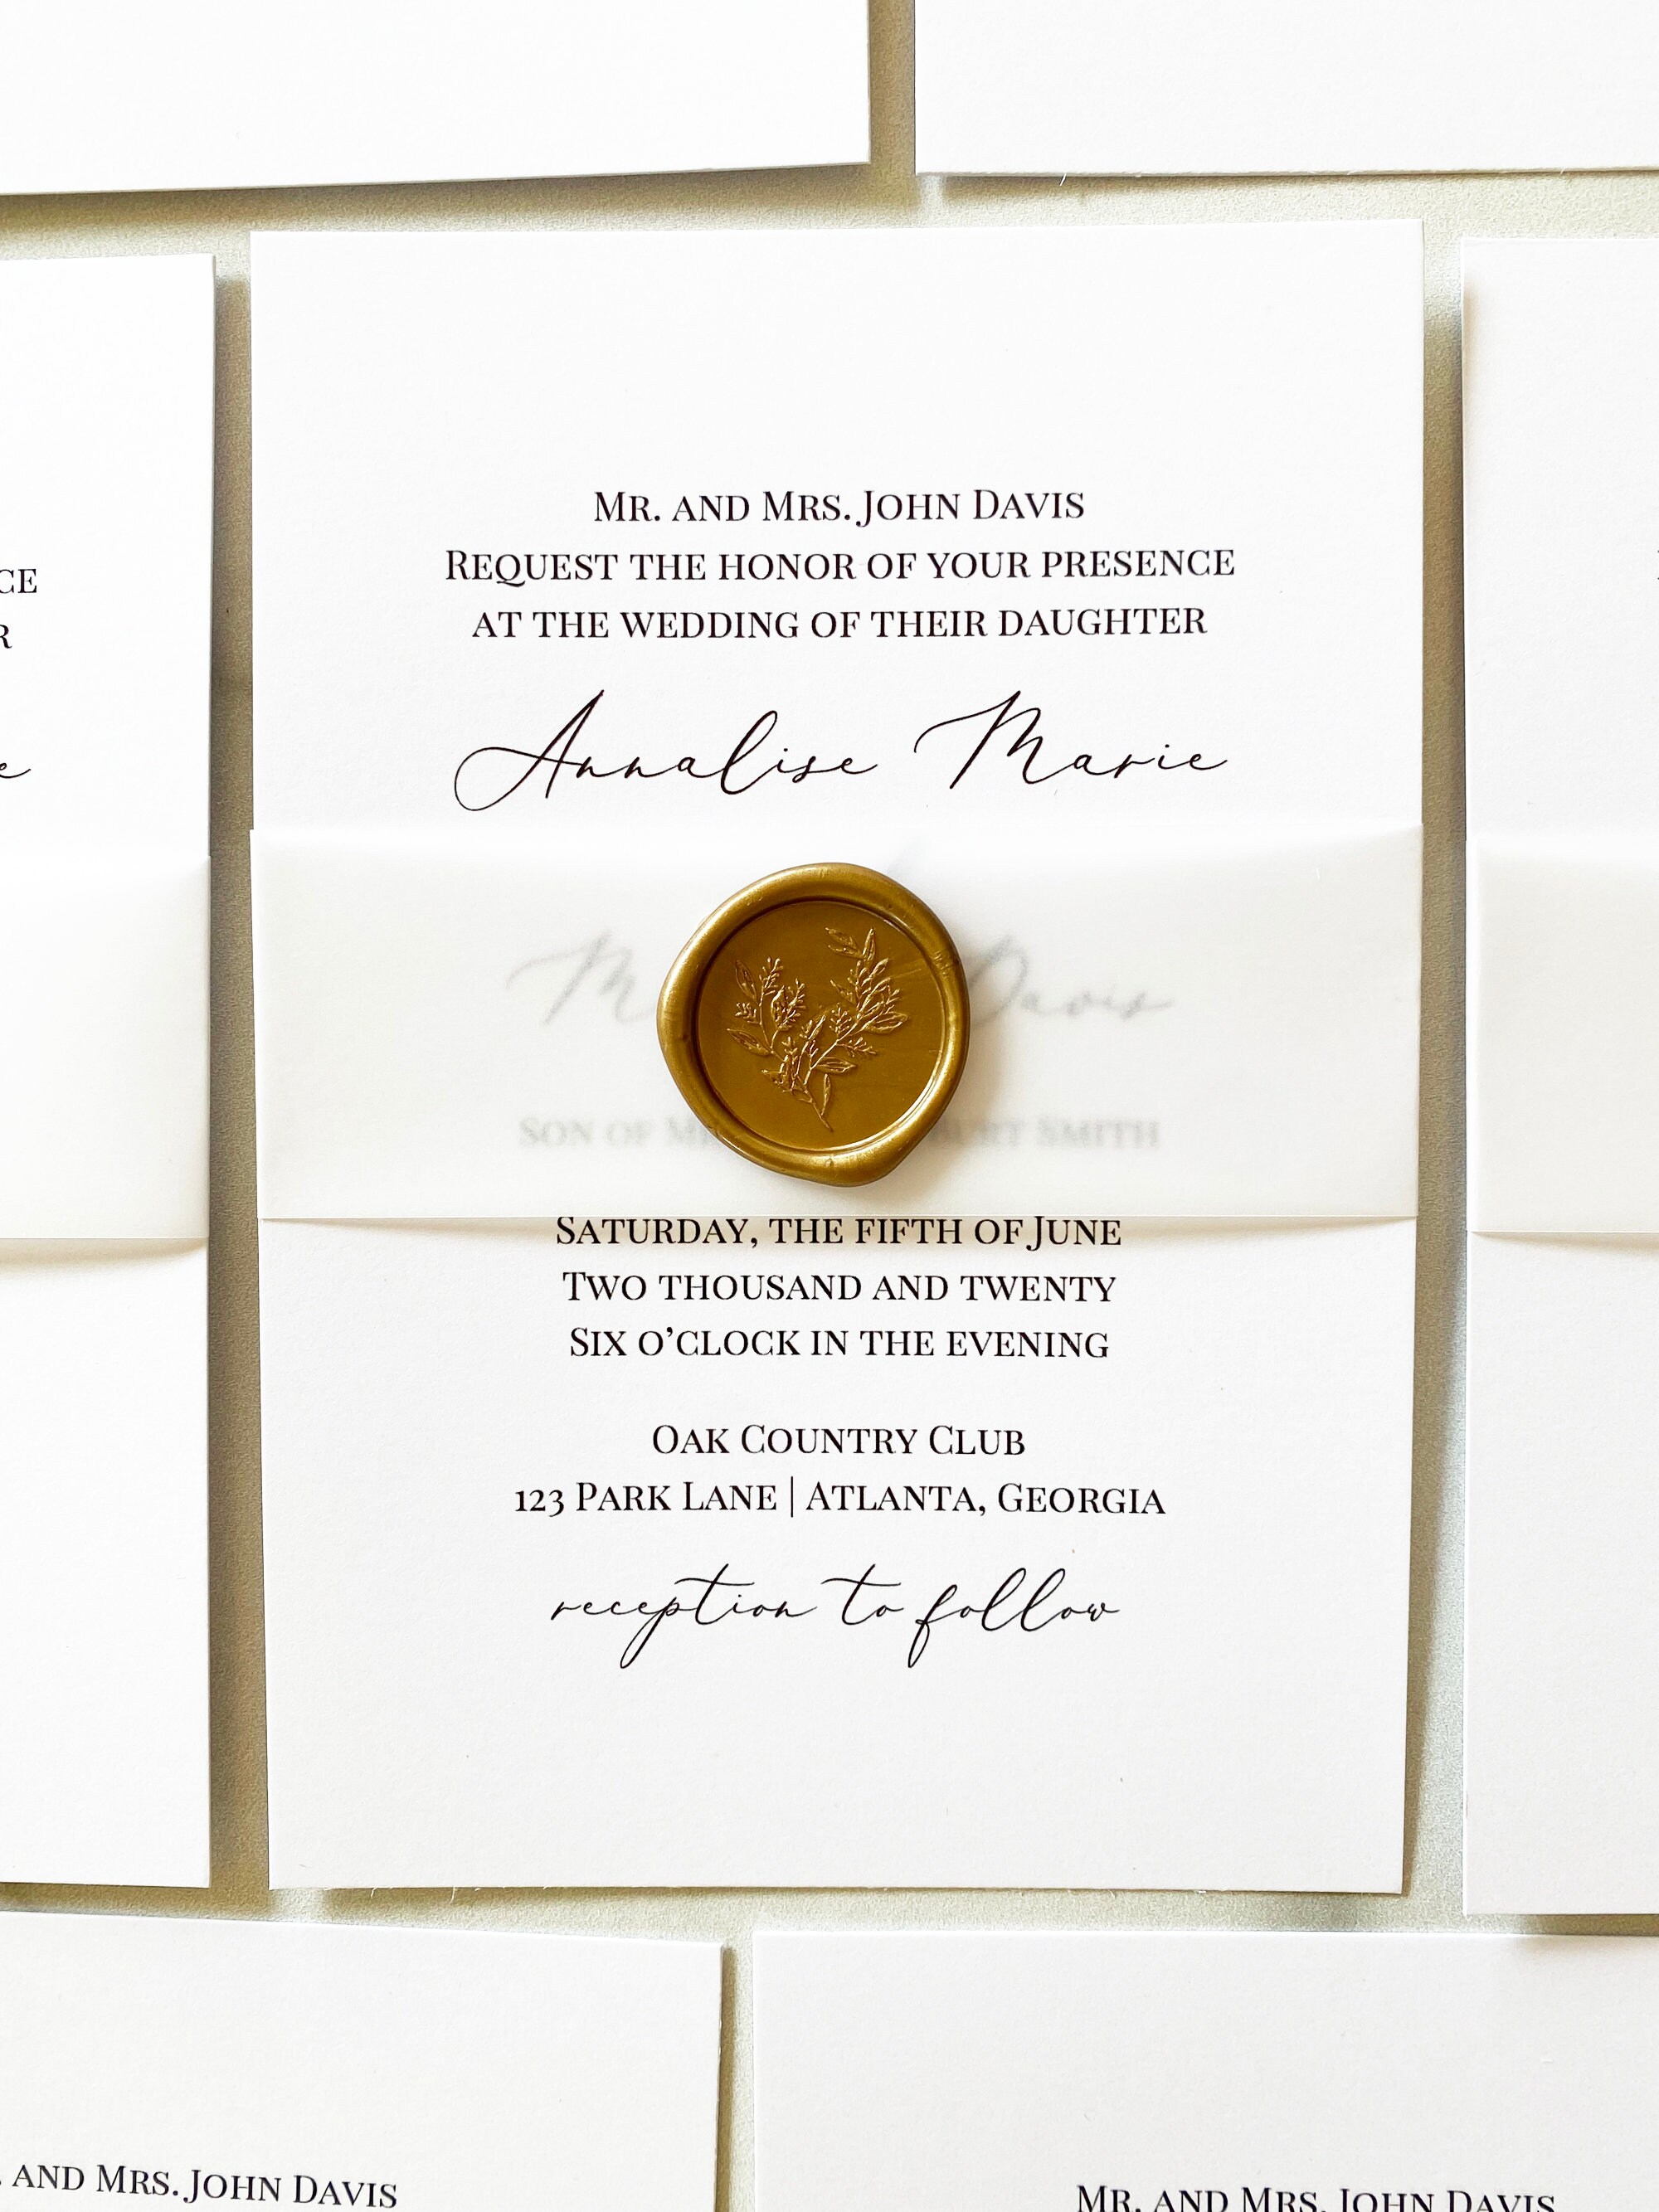 Mr. and Mrs. John Davis
Request the honor of your presence
at the wedding of their daughter
Annalise Marie
Davis
Son of Smith
Saturday, the fifth of June
Two thousand and twenty
Six o'clock in the evening
Oak Country Club
123 Park Lane | Atlanta, Georgia
reception to follow
and Mrs. John Davis
Mr. and Mrs. John Davis